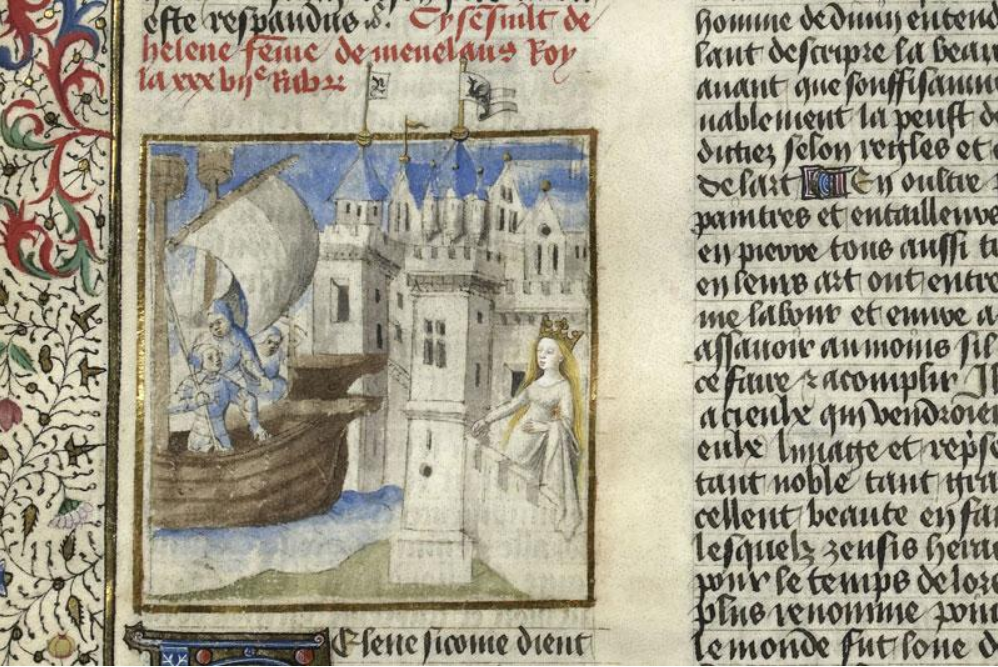 este respandus &c. Cy sensuit de
helene feme de menelaus Roy
la xxxvije Rubr
Elene sicome dient
homme de dung entend
lant descripre la beau
auant que souffisamm
nablement la peust de
dictiez selon reigles et
de lart En oultre
paintres et entailleurs
en pierre tous aussi
en leurs art ont entre
me labour et euure a
assauoir au moins sil
ce faire & acomplir Il
a ceulx qui vendroient
eulx lymage et repse
tant noble tant gra
cellent beaute en fa
lesquelz zensis hera
pour le temps de lors
plus renomme pour
le monde fut loue d